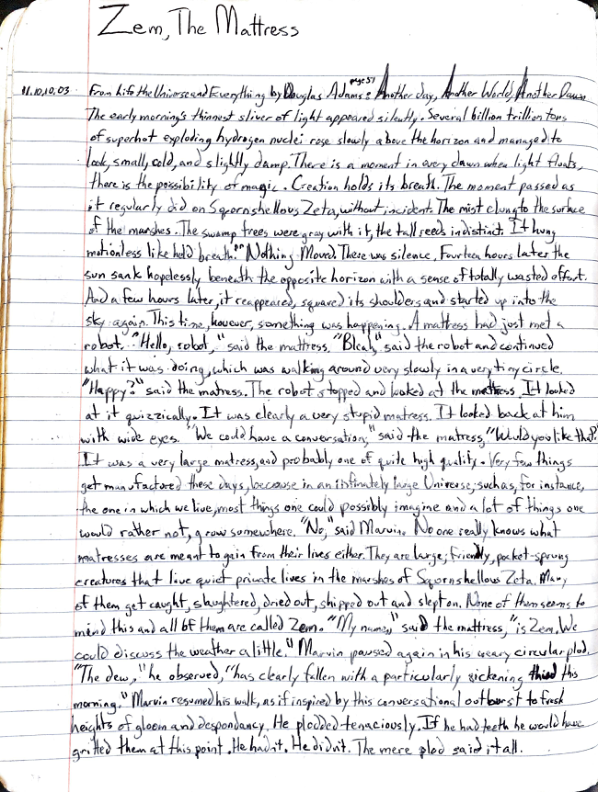 Zem, The Mattress
page 57
11.10.10.03 From Life the Universe and Everything by Douglas Adams: Another day, Another World, Another Dawn
The early morning's thinnest sliver of light appeared silently. Several billion trillion tons
of superhot exploding hydrogen nuclei rose slowly above the horizon and managed to
look, small, cold, and slightly damp. There is a moment in every dawn when light floats,
there is the possibility of magic. Creation holds its breath. The moment passed as
it regularly did on Sqornshellous Zeta, without incident. The mist clung to the surface
of the marshes. The swamp trees were gray with it, the tall reeds indistinct. It hung
motionless like held breath. Nothing Moved. There was silence. Fourteen hours later the
sun sank hopelessly beneath the opposite horizon with a sense of totally wasted effort.
And a few hours later, it reappeared, squared its shoulders and started up into the
sky again. This time, however, something was happening. A mattress had just met a
robot. "Hello, robot," said the mattress. "Bleah," said the robot and continued
what it was doing, which was walking around very slowly in a very tiny circle.
"Happy?" said the matress. The robot stopped and looked at the mattress. It looked
at it quizzically. It was clearly a very stupid matress. It looked back at him
with wide eyes. "We could have a conversation," said the matress, "Would you like that?"
It was a very large matress, and probably one of quite high quality. Very few things
get manufactured these days, because in an infinately large Universe, such as, for instance,
the one in which we live, most things one could possibly imagine and a lot of things one
would rather not, grow somewhere. "No," said Marvin. No one really knows what
matresses are meant to gain from their lives either. They are large, friendly, pocket-sprung
creatures that live quiet private lives in the marshes of Sqornshellous Zeta. Many
of them get caught, slaughtered, dried out, shipped out and slept on. None of them seems to
mind this and all of them are called Zem. "My name," said the mattress, "is Zem. We
could discuss the weather a little." Marvin paused again in his weary circular plod.
"The dew," he observed, "has clearly fallen with a particularly sickening thud this
morning." Marvin resumed his walk, as if inspired by this conversational outburst to fresh
heights of gloom and despondancy. He plodded tenaciously. If he had teeth he would have
gritted them at this point. He hadn't. He didn't. The mere plod said it all.